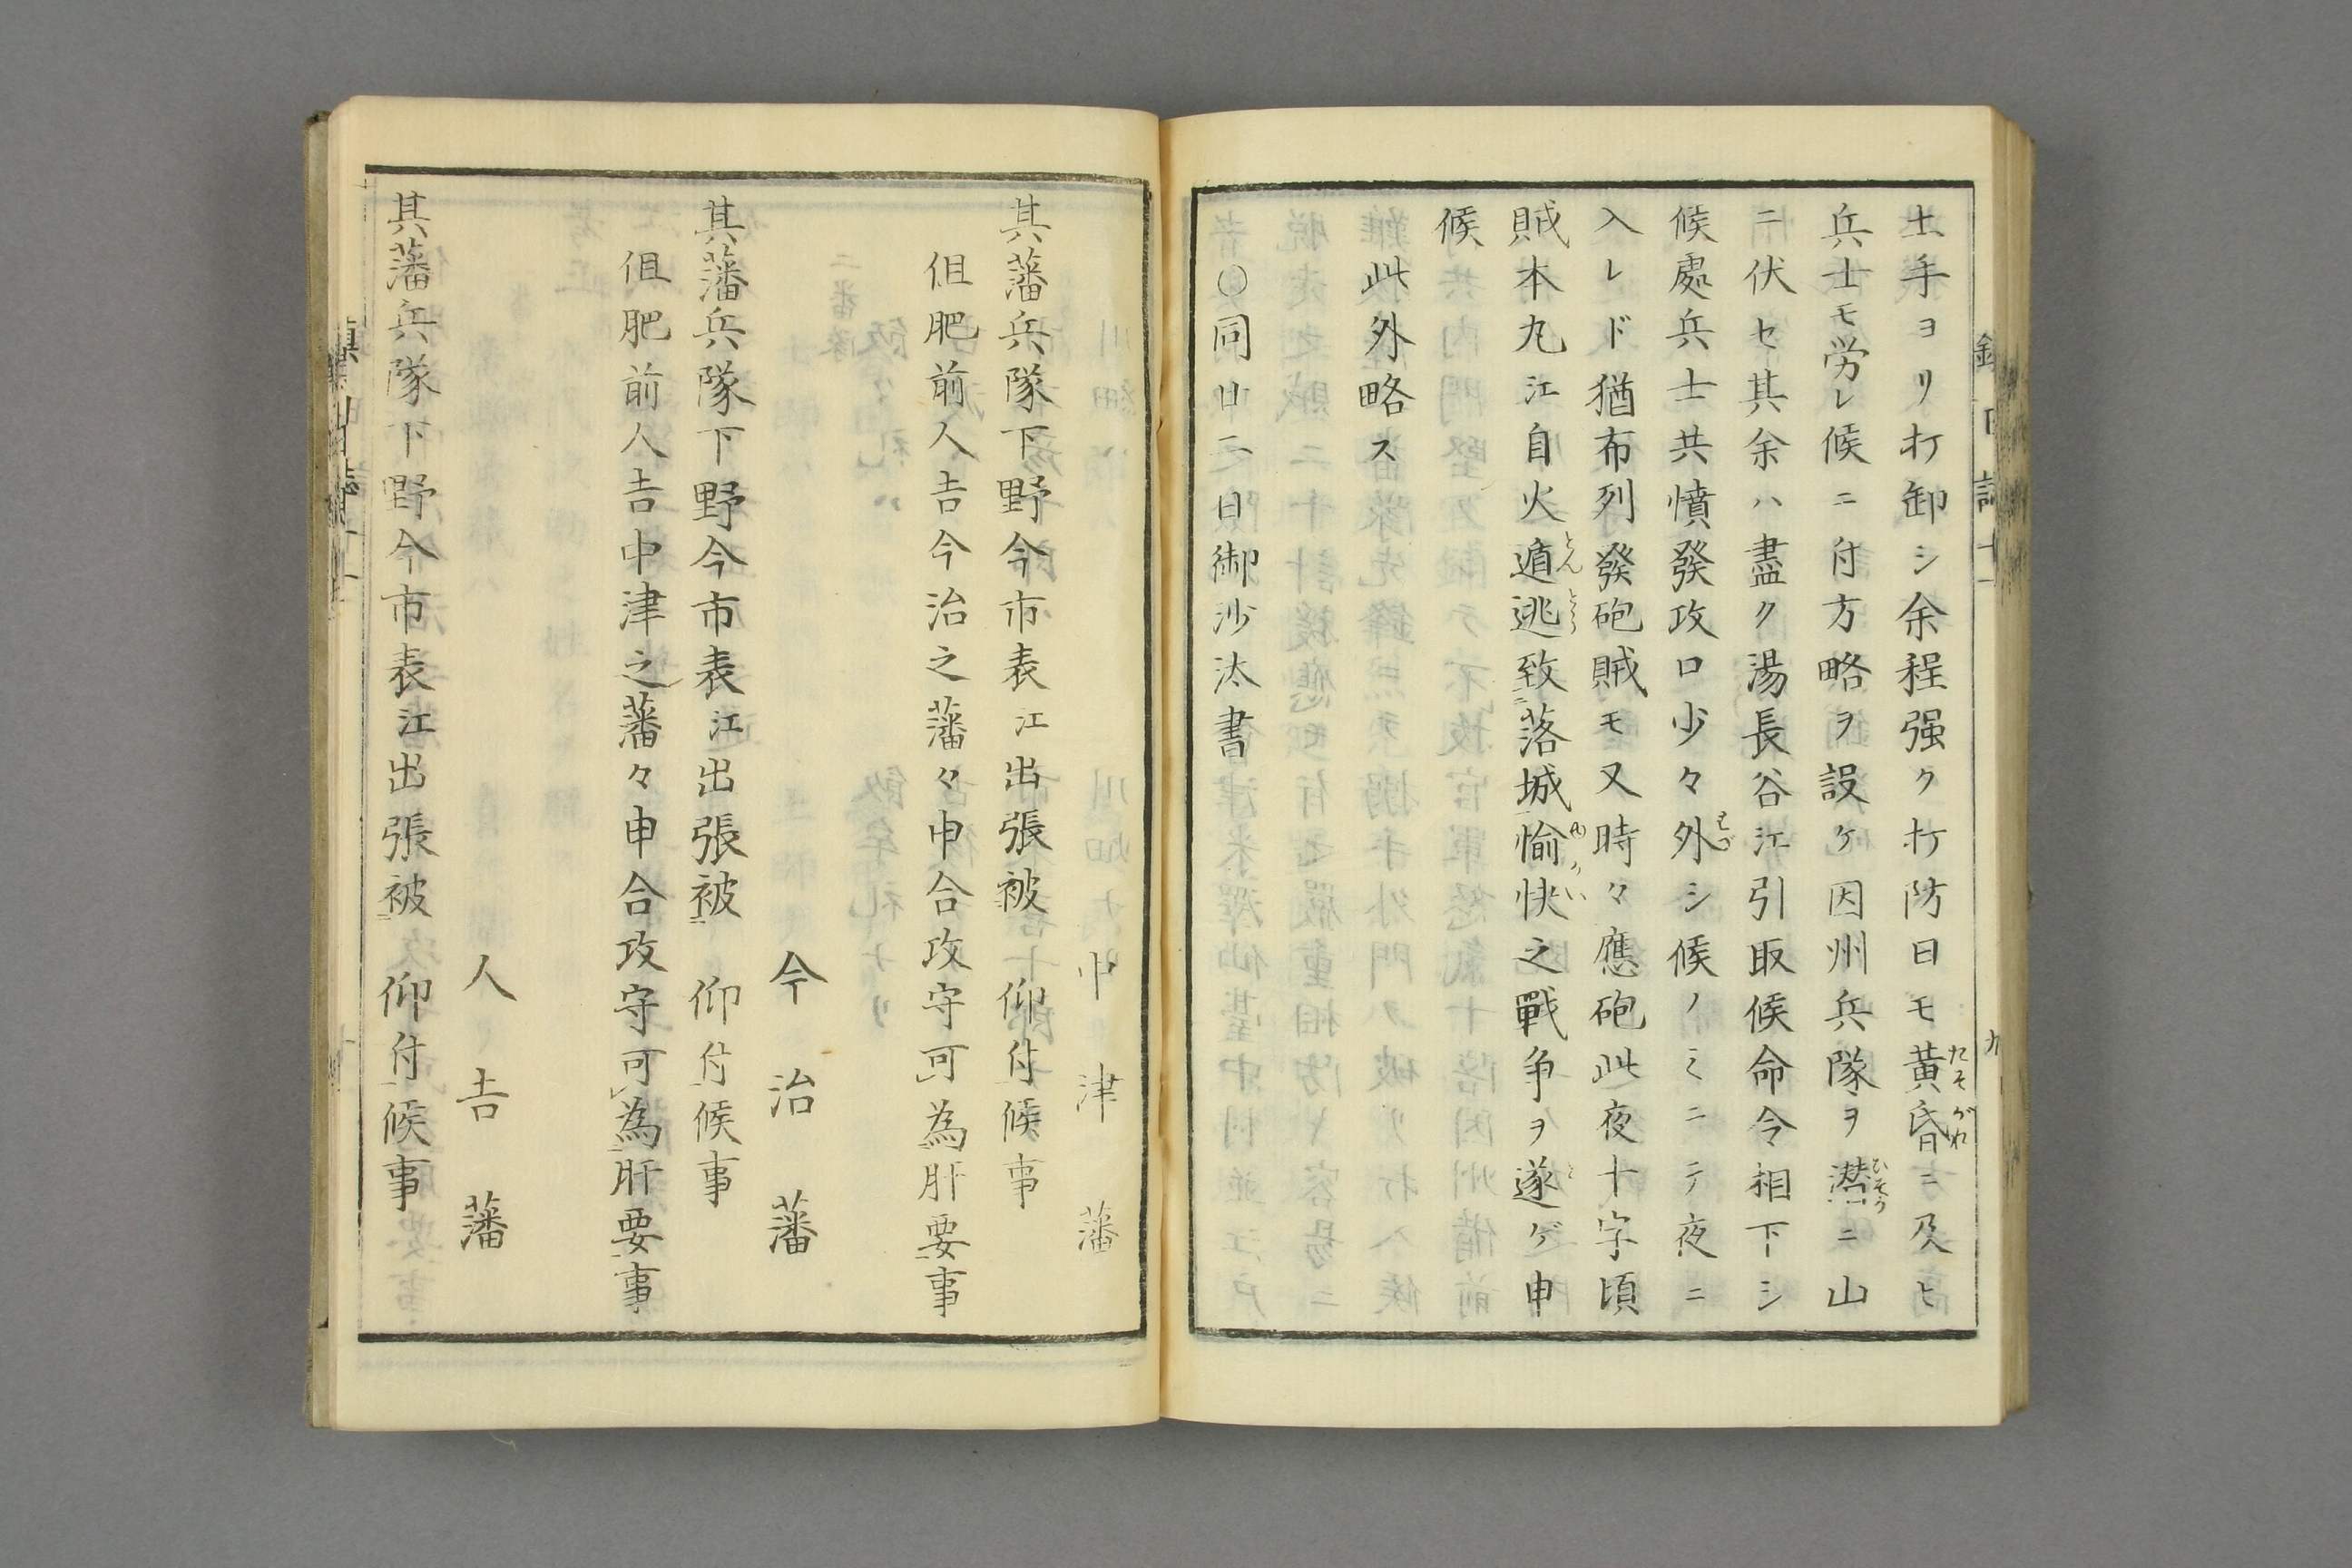 土手ヨリ打卸シ余程强ク打防日モ黄昏ニ及ヒ
兵士モ労レ候ニ付方略ヲ設ケ因州兵隊ヲ潜ニ山
ニ伏セ其余ハ盡ク湯長谷江引取候命令相下シ
候處兵士共憤發攻口少々外シ候ノミニテ夜ニ
入レド猶布列發砲賊モ又時々應砲此夜十字頃
賊本丸江自火遁逃致落城愉快之戰争ヲ遂ゲ申
候
此外略ス
〇同廿二日御沙汰書
中津藩
其藩兵隊下野今市表江出張被仰付候事
但肥前人吉今治之藩々申合攻守可為肝要事
今治藩
其藩兵隊下野今市表江出張被仰付候事
但肥前人吉中津之藩々申合攻守可為肝要事
人吉藩
其藩兵隊下野今市表江出張被仰付候事